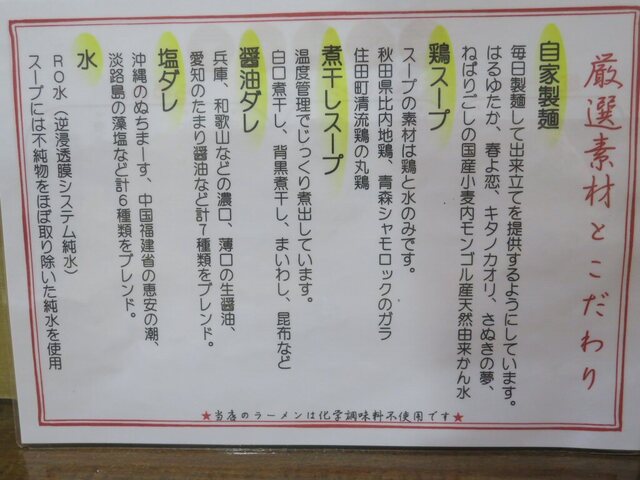 厳選素材とこだわり
自家製麺
毎日製麺して出来立てを提供するようにしています。
はるゆたか、春よ恋、キタノカオリ、さぬきの夢、
ねばりごしの国産小麦内モンゴル産天然由来かん水
鶏スープ
スープの素材は鶏と水のみです。
秋田県比内地鶏、青森シャモロックのガラ
住田町清流鶏の丸鶏
煮干しスープ
温度管理でじっくり煮出しています。
白口煮干し、背黒煮干し、まいわし、昆布など
醤油ダレ
兵庫、和歌山などの濃口、薄口の生醤油、
愛知のたまり醤油など計7種類をブレンド。
塩ダレ
沖縄のぬちまーす、中国福建省の恵安の潮、
淡路島の藻塩など計6種類をブレンド。
水
RO水(逆浸透膜システム純水)
スープには不純物をほぼ取り除いた純水を使用
★当店のラーメンは化学調味料不使用です★